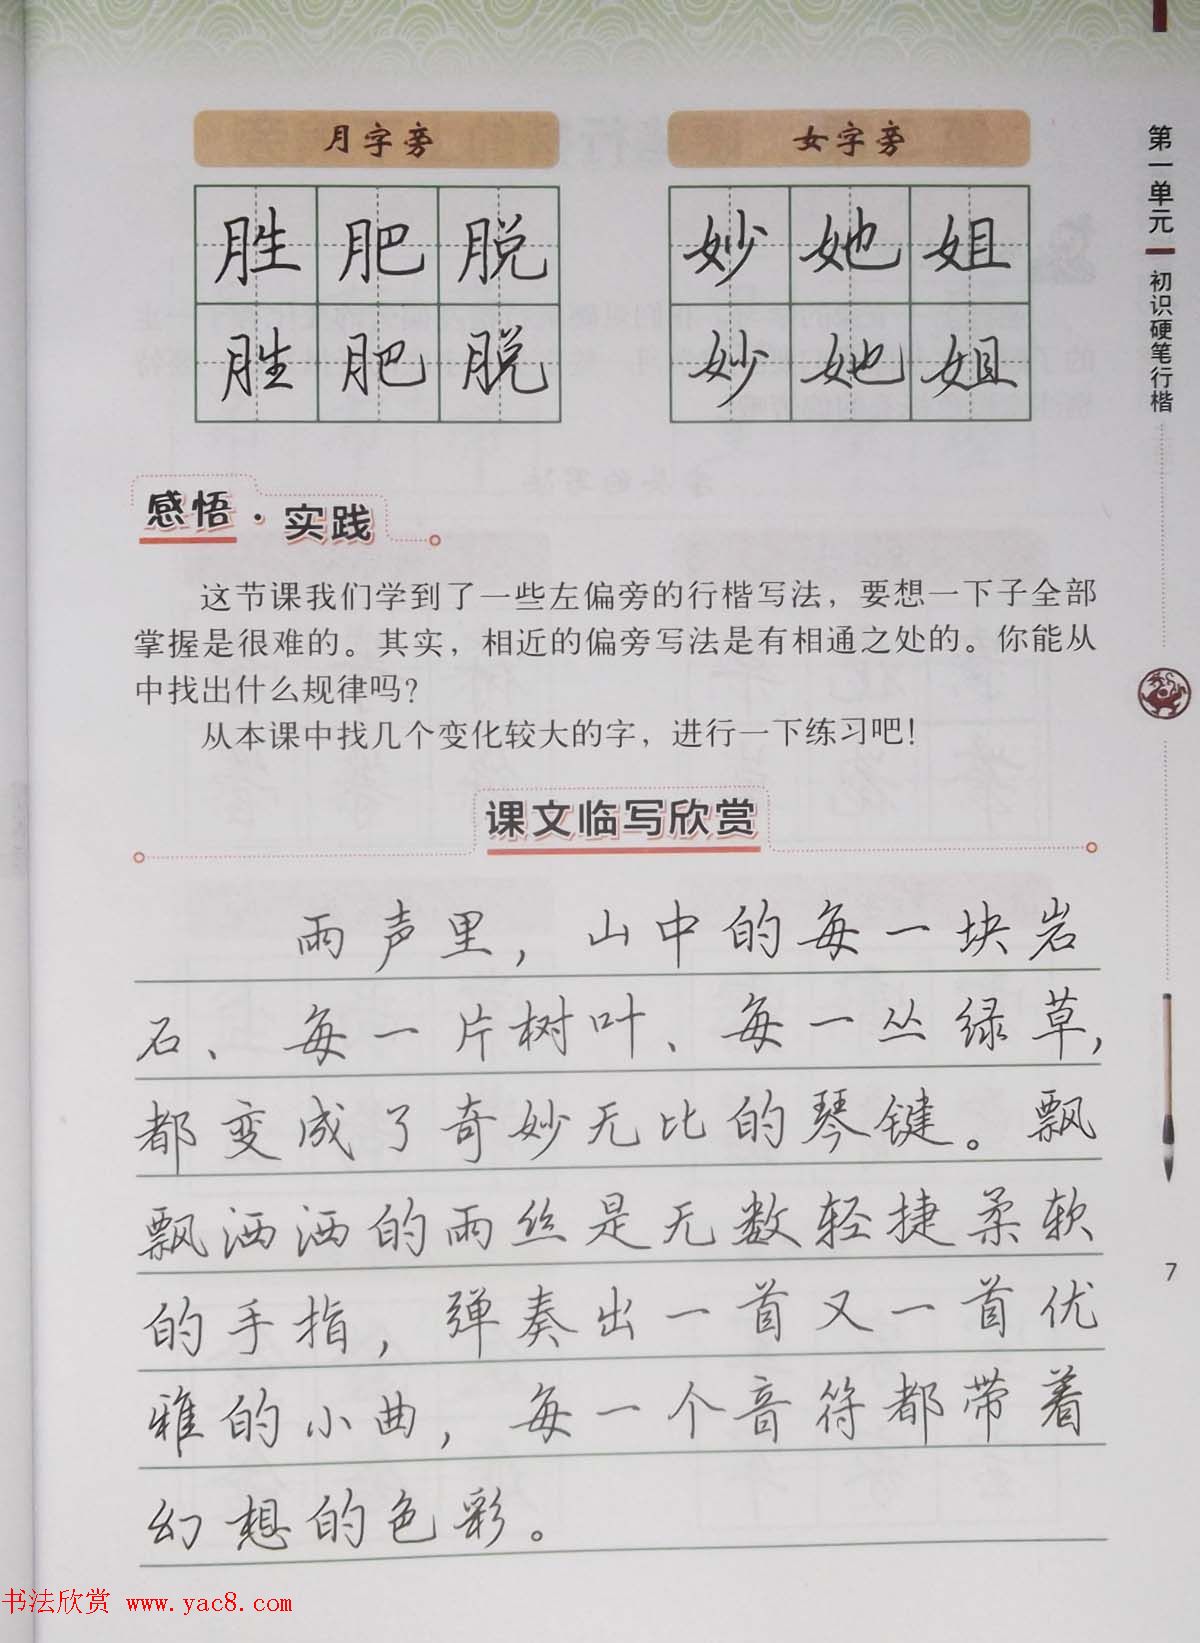 月字旁
女字旁
胜 肥 脱
妙 她 姐
胜 肥 脱
妙 她 姐
第一单元 初识硬笔行楷
感悟·实践
这节课我们学到了一些左偏旁的行楷写法，要想一下子全部
掌握是很难的。其实，相近的偏旁写法是有相通之处的。你能从
中找出什么规律吗？
从本课中找几个变化较大的字，进行一下练习吧！
课文临写欣赏
雨声里，山中的每一块岩
石、每一片树叶、每一丛绿草，
都变成了奇妙无比的琴键。飘
飘洒洒的雨丝是无数轻捷柔软
的手指，弹奏出一首又一首优
雅的小曲，每一个音符都带着
幻想的色彩。
7
书法欣赏 www.yac8.com